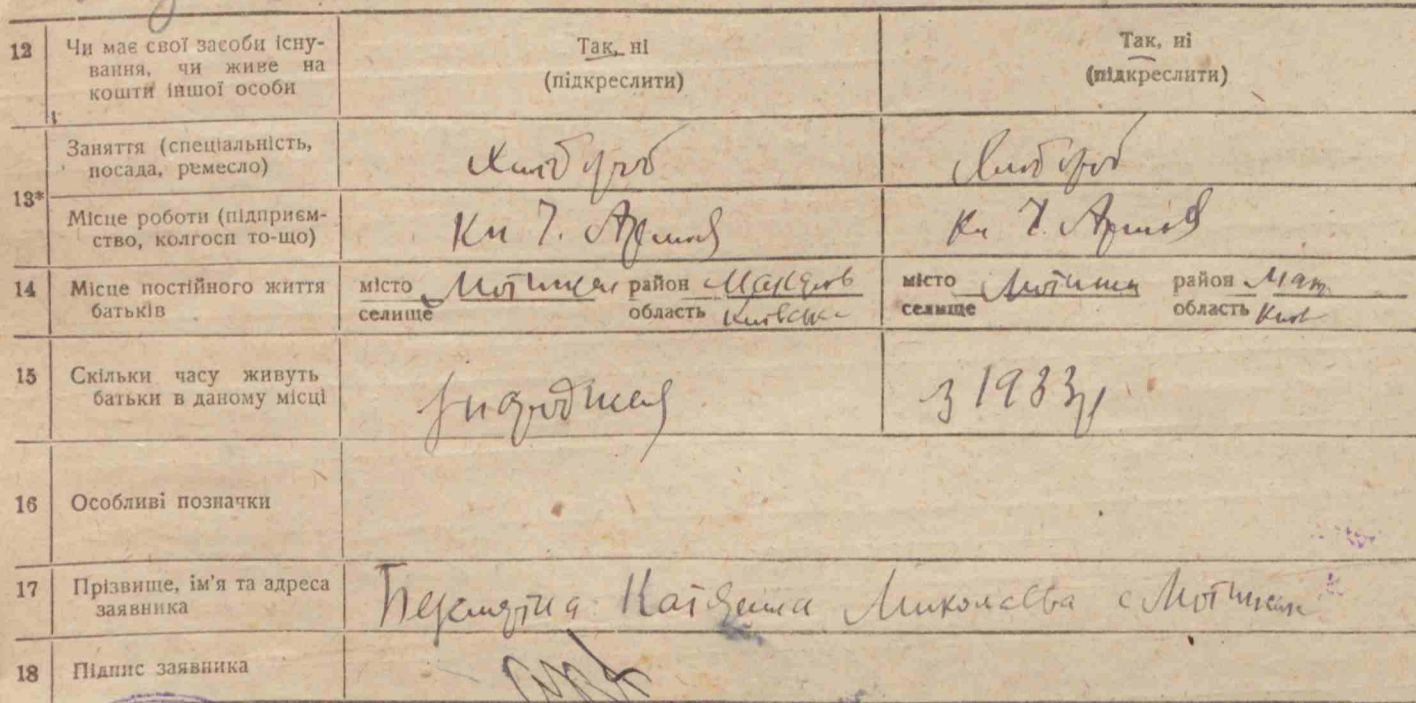 12 Чи має свої засоби існу-
вання, чи живе на
кошти іншої особи
Так, ні
(підкреслити)
Так, ні
(підкреслити)
13*
Заняття (спеціальність,
посада, ремесло)
Хлібороб
Хлібороб
Місце роботи (підприєм-
ство, колгосп то-що)
Кл Ч. Армія
Кл Ч. Армія
14 Місце постійного життя
батьків
місто Мотижин район Макарів
селище область Київська
місто Мотижин район Мак
селище область Київ
15 Скільки часу живуть
батьки в даному місці
з народження
з 1933р
16 Особливі позначки
17 Прізвище, ім'я та адреса
заявника
Катерина Миколаєва с Мотижин
18 Підпис заявника